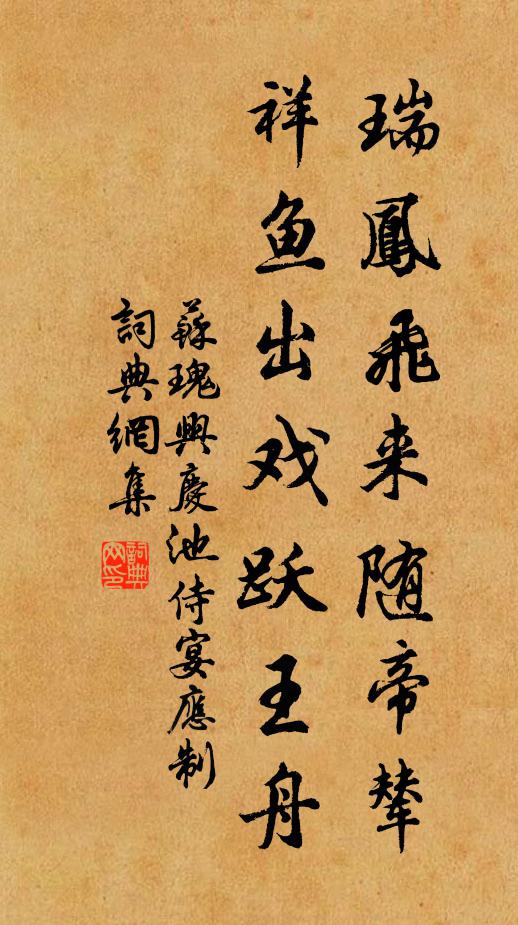 瑞鳳飛来随帝輦
祥鱼出戏跃王舟
蘇瑰興慶池侍宴應制
詞典網集
詞典網印